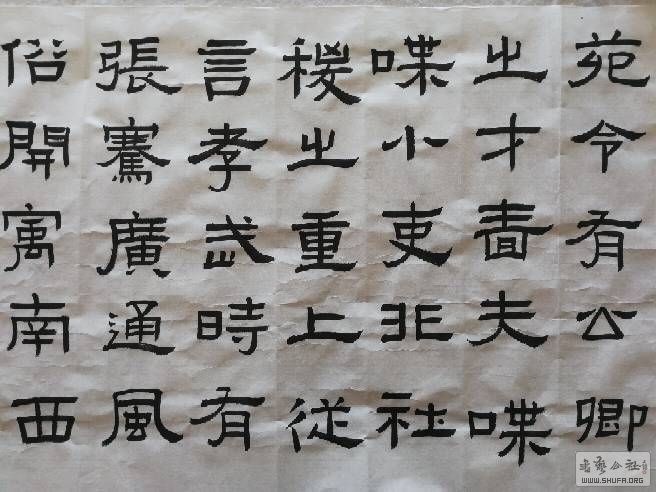 苑令有公卿
之才嗇夫喋
喋小吏非社
稷之重上從
言孝武時有
張騫廣通風
俗開寓南西
书艺公社
WWW.SHUFA.ORG